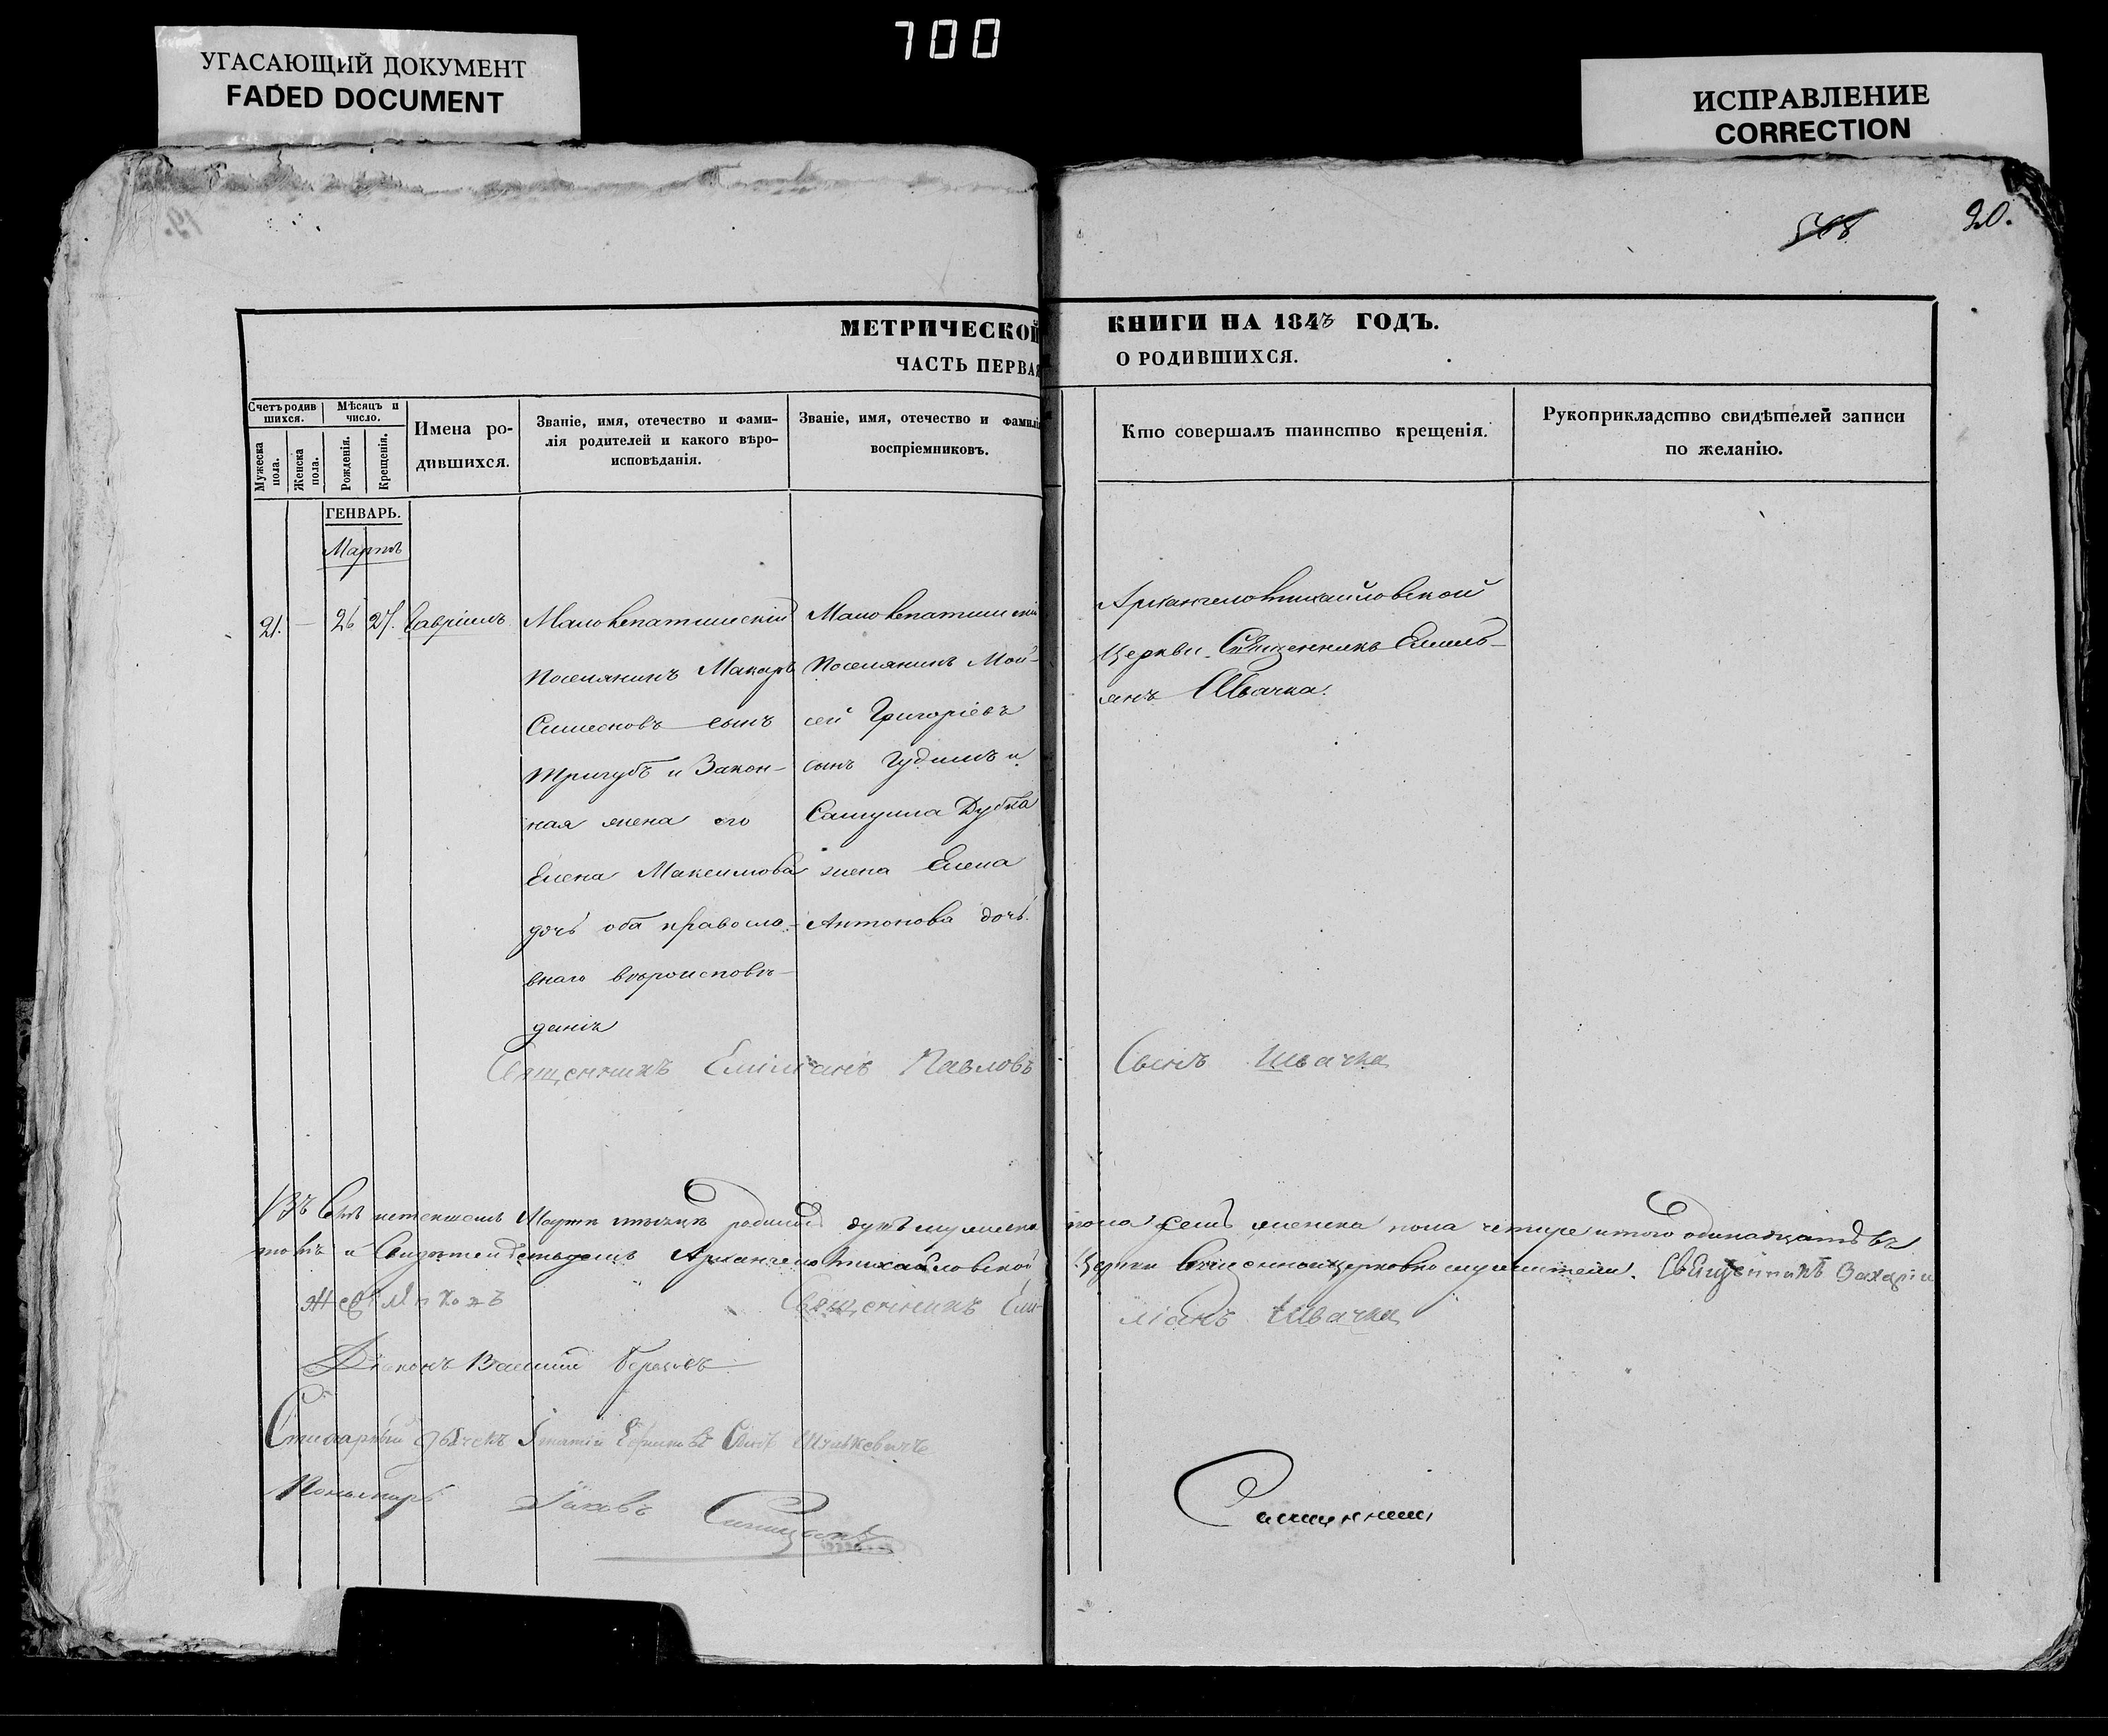 700
УГАСАЮЩИЙ ДОКУМЕНТ
FADED DOCUMENT
ИСПРАВЛЕНИЕ
CORRECTION
568
20.
МЕТРИЧЕСКОЙ КНИГИ НА 1843 ГОДЪ.
ЧАСТЬ ПЕРВАЯ О РОДИВШИХСЯ.
Счетъ родив
шихся.
Мужеска
пола.
Женска
пола.
Мѣсяцъ и
число.
Рожденія.
Крещенія.
Имена ро-
дившихся.
Званіе, имя, отечество и фами-
лія родителей и какого вѣро-
исповѣданія.
Званіе, имя, отечество и фамилія
воспріемниковъ.
Кто совершалъ таинство крещенія.
Рукоприкладство свидѣтелей записи
по желанію.
ГЕНВАРЬ.
Мартъ
21. — 26 27. Гавріилъ
Поселянинъ Макаръ
Симеоновъ сынъ
Тригубъ и Закон-
ная жена его
Елена Максимова
дочь оба правосла-
внаго вѣроисповѣ-
данія
Поселянинъ Мой-
сей Григоріевъ
сынъ Гудимъ и
Самуила Дубка
жена Елена
Антонова дочь.
Архангеломихайловской
Церкви Священникъ Емиль-
янъ Швачка.
Священникъ Емиліанъ Павловъ Сынъ Швачка
Мартѣ мѣсяцѣ родилось мужеска пола семь женска пола четыре итого одинадцать въ
Архангеломихайловской Церкви Священноцерковнослужители. Священникъ Захарій
Священникъ Еми-
ліанъ Швачка
Діаконъ Василій
Стихарный дьячекъ Сынъ
Пономарь Іаковъ